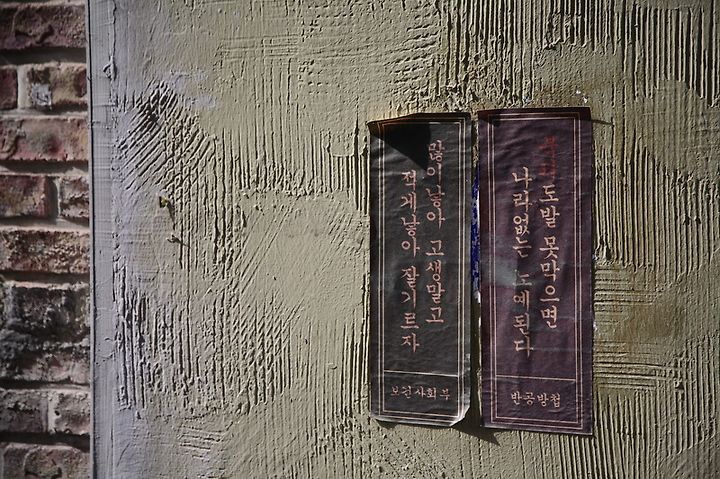 많이낳아 고생말고
적게낳아 잘기르자
보건사회부
도발 못막으면
나라없는 노예된다
반공방첩